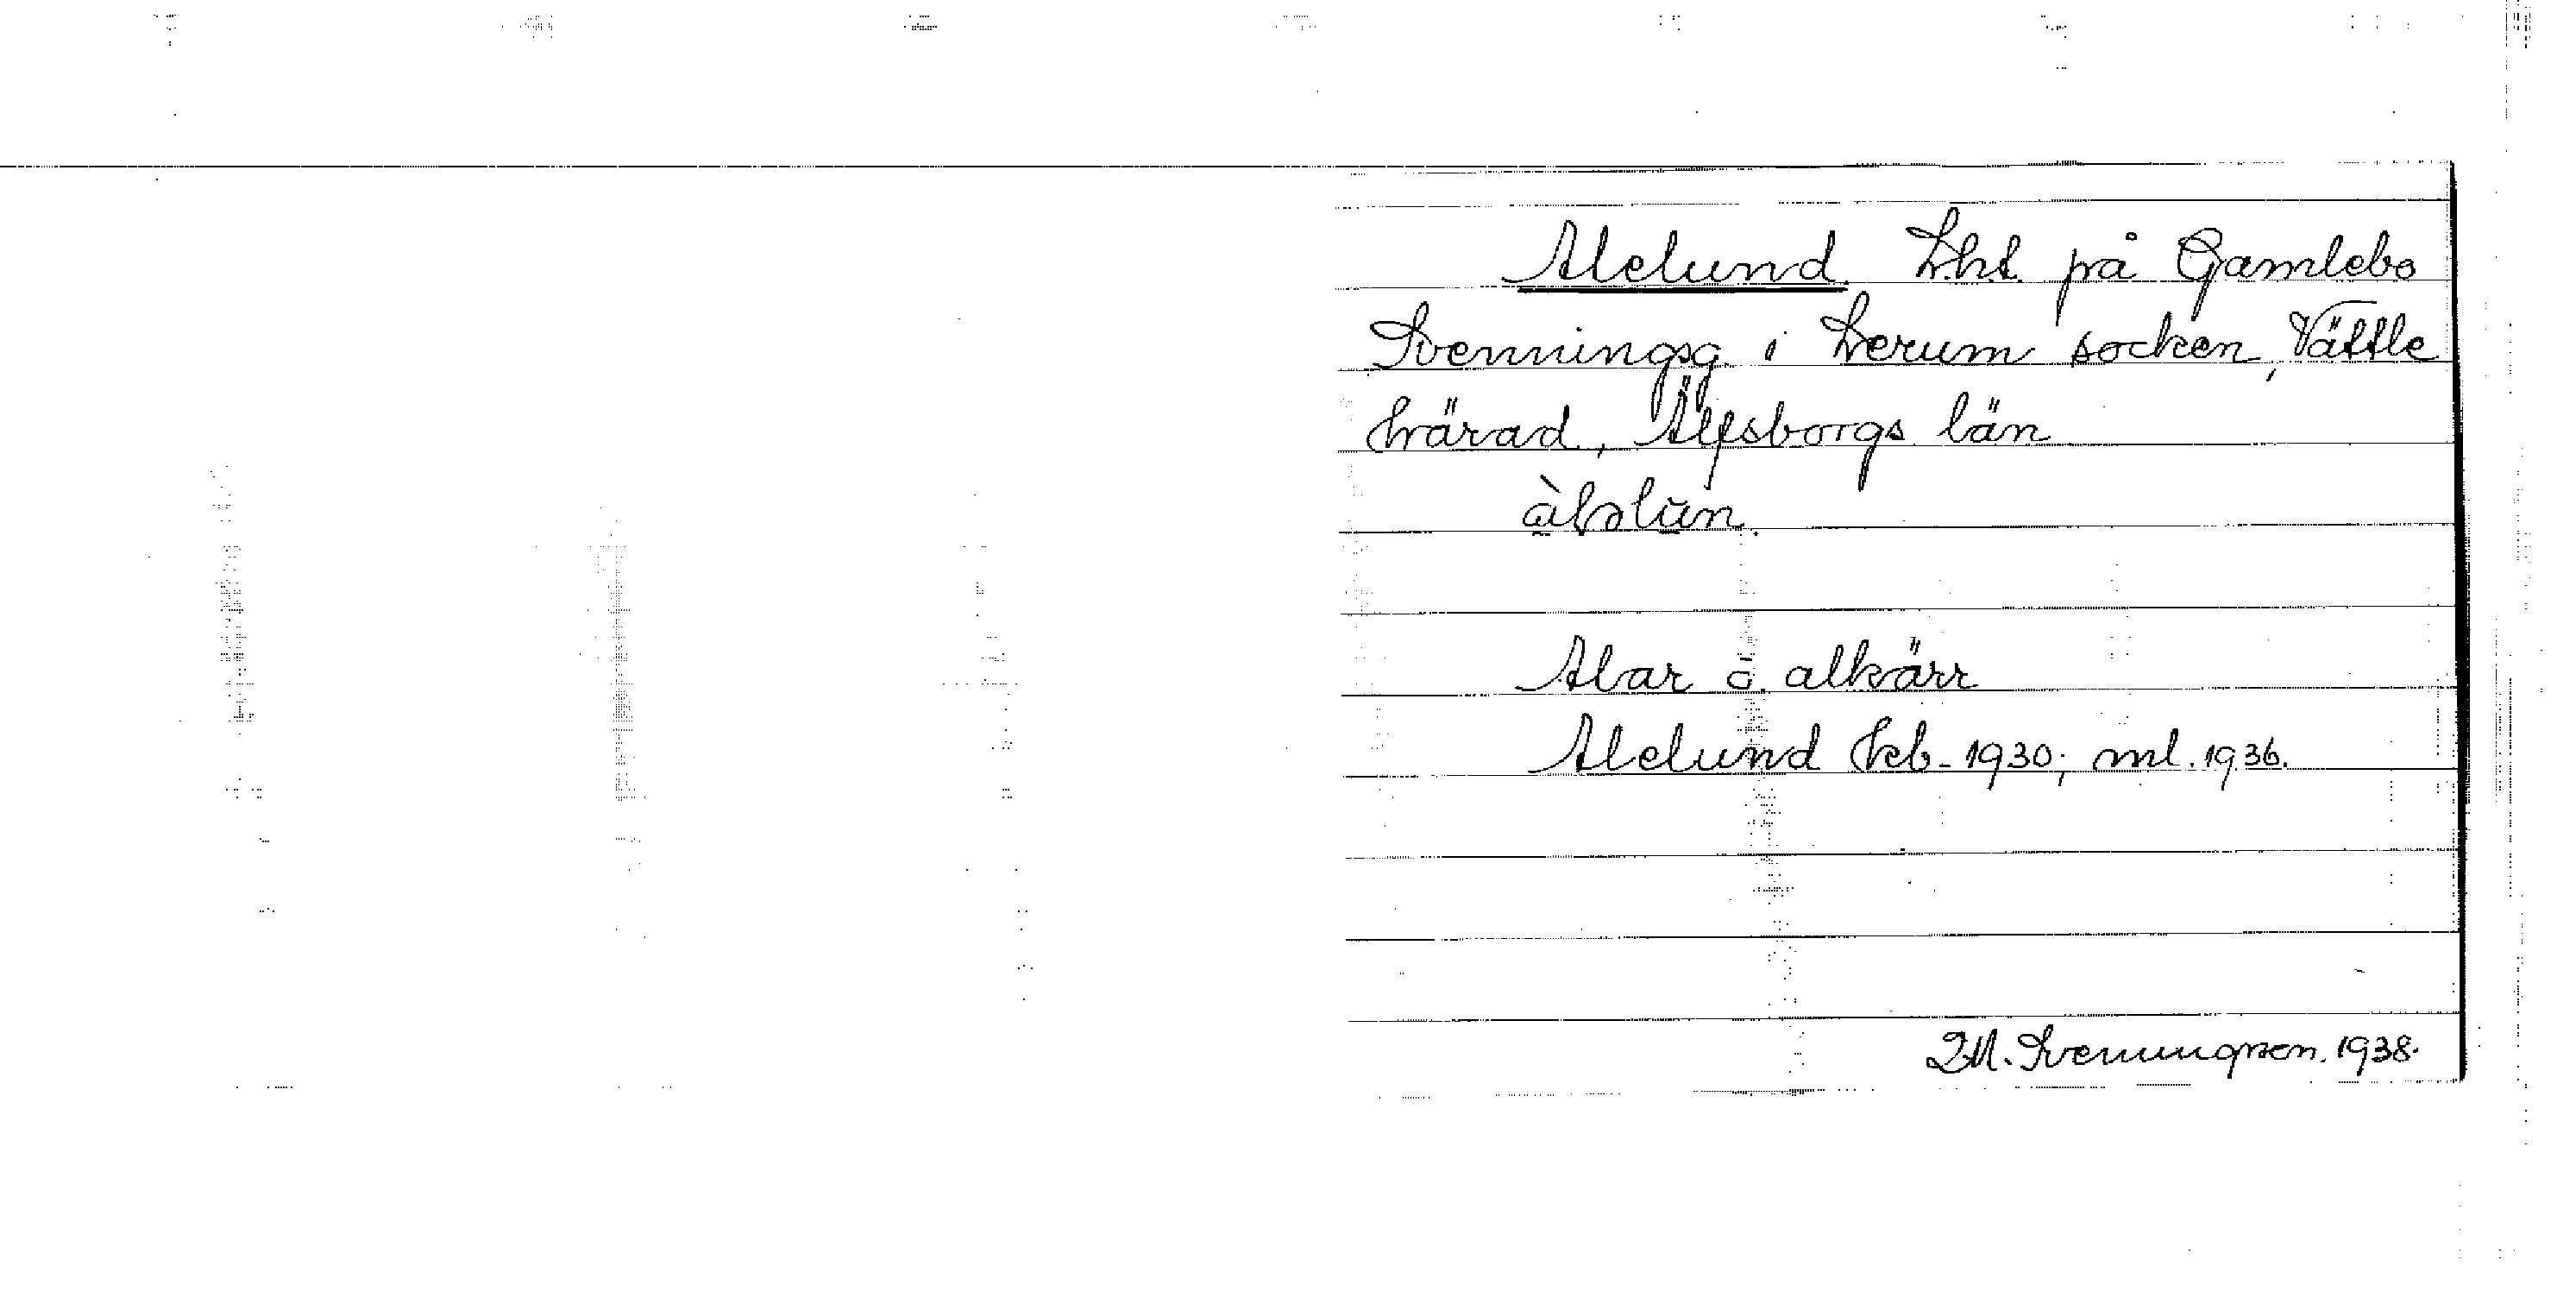 Alelund Lht på Gamlebo
Svenningsg. i Lerum socken, Vättle
härad, Älfsborgs län
àləlun.
Alar o. alkärr
Alelund hcb. 1930; ml. 1936.
M. Svenungsson. 1938.